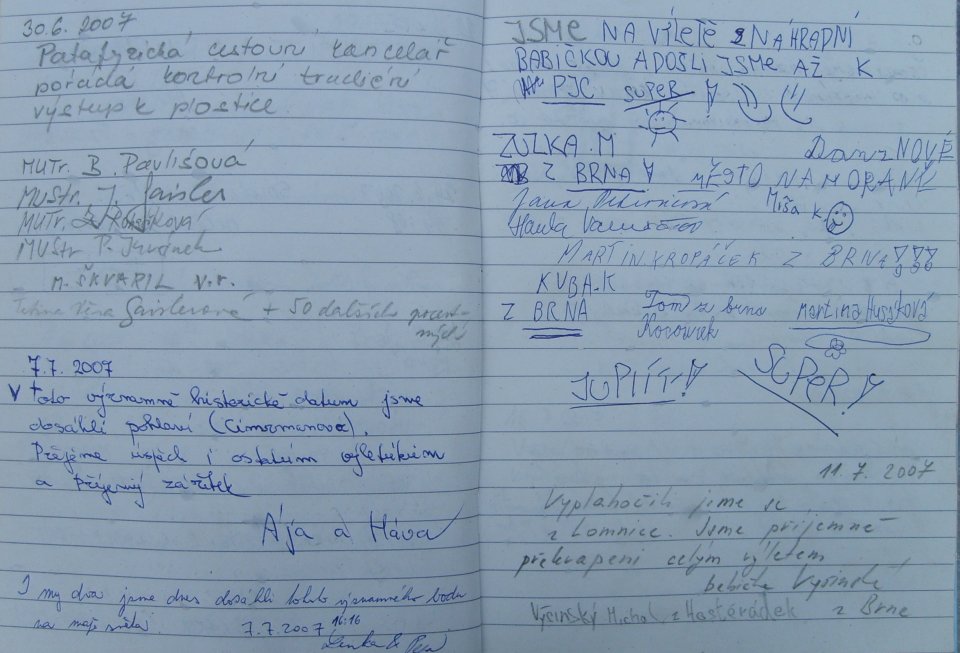 30.6. 2007
Patafyzická cestovní kancelář
pořádá kontrolní tradiční
výstup k plostice.
MUTr. B. Pavlišová
MUStr. J. Gaisler
MUTr.
MUStr P.
M. ŠKVARIL v.r.
Gaislerová + 50 dalších
7.7. 2007
V toto významné historické datum jsme
dosáhli pohlaví (Cimrmanova).
Přejeme úspěch i ostatním výletníkům
a příjemný zážitek
Ája a Háva
I my dva jsme dnes dosáhli tohoto významného bodu
na mapě světa.
7.7.2007 16:16
Lenka &
JSME NA VÝLETĚ S NÁHRADNÍ
BABIČKOU A DOŠLI JSME AŽ K
PJC SUPER !
ZUZKA.M
Z BRNA!
Dan z NOVÉ
MĚSTO NA MORAVĚ
Jana
Míša K.
Hanka
MARTIN.KROPÁČEK Z BRNA!!!
KUBA.K
Z BRNA
Tom z brna
martina Husáková
JUPÍÍ!
SUPER!
11.7. 2007
Vyplahočili jsme se
z Lomnice. Jsme příjemně
překvapeni celým výletem
Výšinský Michal z Hostěrádek z Brna